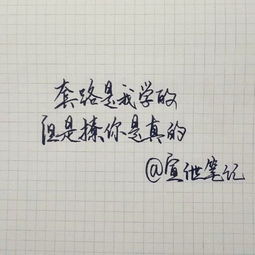 套路是我学的
但是撩你是真的
@宣世笔记